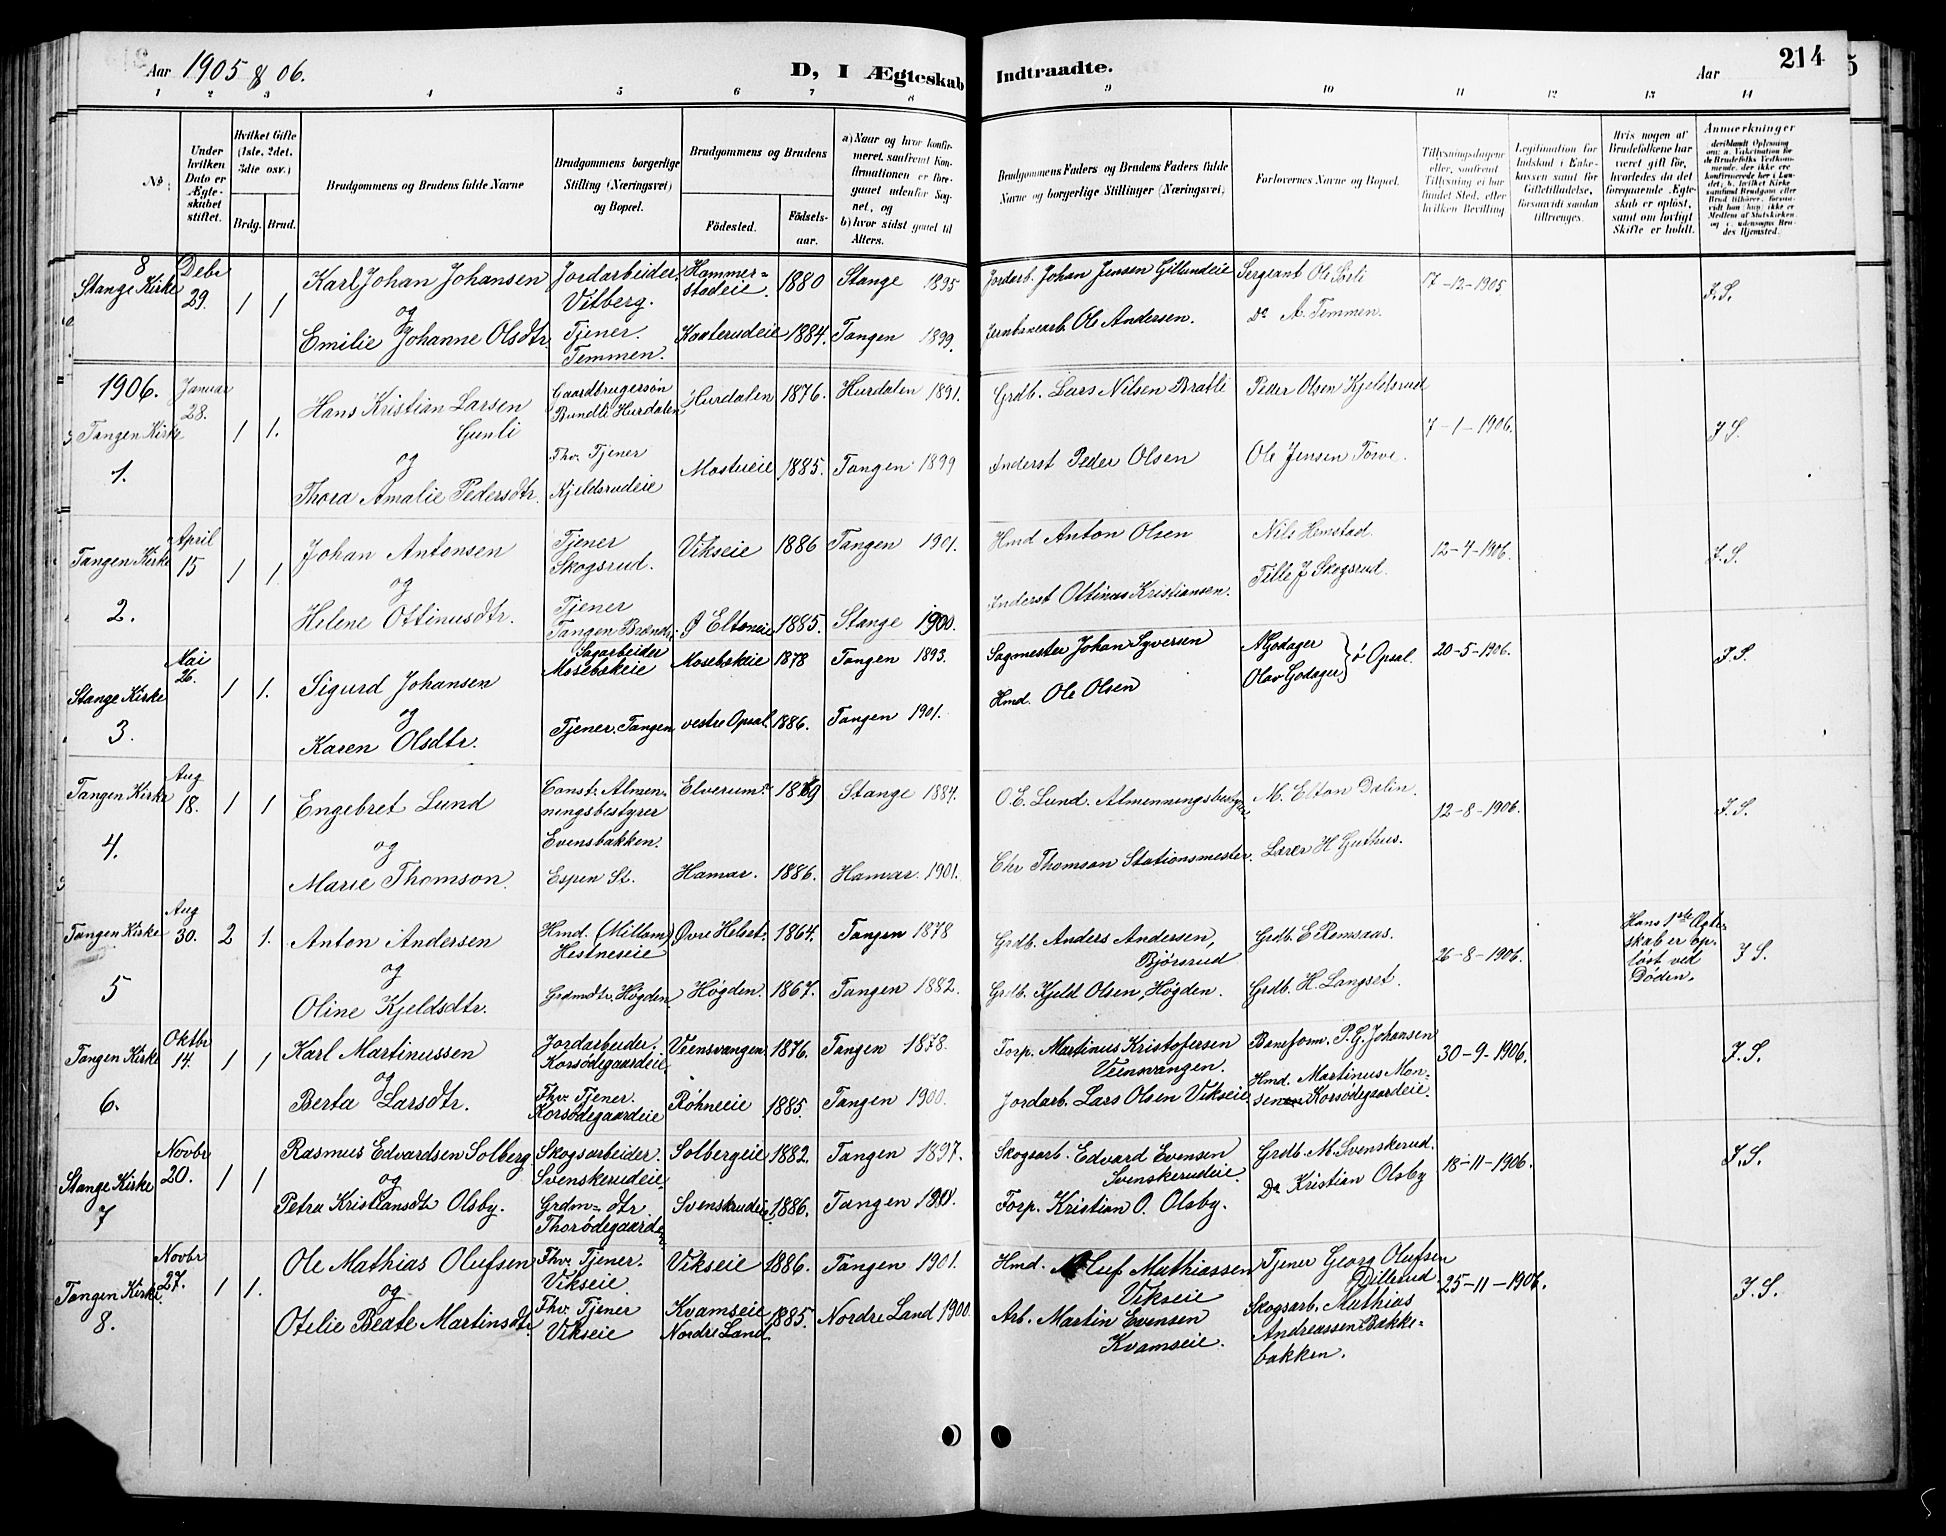 Aar 1905 & 06. D, I Ægteskab Indtraadte. Aar 214
1 2 3 4 5 6 7 8 9 10 11 12 13 14
No.
Under hvilken Dato er Ægteskabet stiftet.
Hvilket Gifte (1ste, 2det, 3die osv.)
Brdg. Brud.
Brudgommens og Brudens fulde Navne
Brudgommens borgerlige Stilling (Næringsvei) og Bopæl.
Brudgommens og Brudens
Fødested. Fødselsaar.
a) Naar og hvor konfirmeret, samfremt Konfirmationen er foregaaet udenfor Sognet, og
b) hvor sidst gaaet til Alters.
Brudgommens Faders og Brudens Faders fulde Navne og borgerlige Stillinger (Næringsvei)
Forlovernes Navne og Bopæl.
Tillysningsdagene eller, samfremt Tillysning ei har fundet Sted, efter hvilken Bevilling
Legitimation for Indskud i Enkekassen samt for Giftetilladelse, forsaavidt saadan tiltrænges.
Hvis nogen af Brudefolkene har været gift før, hvorledes da det foregaaende Ægteskab er opløst, samt om lovligt Skifte er holdt.
Anmerkninger
8 Stange Kirke Debr 29. 1 1
Karl Johan Johansen Jordarbeider. Vitberg. Hammerstadeie. 1880 Stange 1895 Jordarb. Johan Jensen Gillundeie Sergeant Ole Sørli 17-12-1905. J.S.
og
Emilie Johanne Olsdtr. Tjener. Temmen. Kaaterudeie 1884. Tangen 1899. Ole Andersen. Do A. Temmen.
1906. Tangen Kirke 1. Januar 28. 1 1.
Hans Kristian Larsen Gunli Gaardbrugersøn Bundli Hurdalen Hurdalen 1876. Hurdalen 1891. Grdb. Lars Nilsen Bratli Peder Olsen Kjeldsrud 7-1-1906. J.S.
og
Thora Amalie Pedersdtr. Fhv. Tjener Kjeldsrudeie Mostueie 1885. Tangen 1899 Inderst Peder Olsen Ole Jensen Torve.
Tangen Kirke 2. April 15 1 1
Johan Antonsen Tjener Skogsrud. Vikseie 1886 Tangen 1901. Hmd Anton Olsen Nils Hemstad. 12-4-1906. J.S
og
Helene Ottinusdtr. Tjener Tangen Brænderi Ø Eltoneie 1885. Stange 1900. Inderst Ottinus Kristiansen. Tille J Skogsrud.
Stange Kirke 3. Mai 26. 1 1.
Sigurd Johansen Sagarbeider Mosebækeie Mosebækeie 1878 Tangen 1893. Sagmester Johan Syversen N Godager 20-5-1906. J.S.
og
Karen Olsdtr. Tjener. Tangen vestre Opsal. 1886. Tangen 1901. Hmd. Ole Olsen Olav Godager } ø Opsal.
Tangen Kirke 4. Aug 18. 1 1
Engebret Lund Const. Almenningsbestyrer Evensbakken. Elverum 1869 Stange 1884. O.E. Lund. Almenningsbestyrer M. Elton Dalin. 12-8-1906. J.S.
og
Marie Thomson. Espen St. Hamar. 1886. Hamar. 1901. Chr Thomson Stationsmester. Lærer H Guthus.
Tangen Kirke 5 Aug 30. 2 1.
Anton Andersen Hmd. (Millom) Hestneseie Øvre Helset. 1864. Tangen 1878 Grdb. Anders Andersen, Bjørsrud Grdb. E Romsaas. 26-8-1906. Hans 1ste Ægteskab er opløst ved Døden. J S.
og
Oline Kjeldsdtr. Grdmdtr. Høgden Høgden. 1867. Tangen 1882. Grdb. Kjeld Olsen, Høgden. Grdb. H. Langset.
Tangen Kirke 6. Oktbr 14. 1 1
Karl Martinussen Jordarbeider. Korsødegaardeie Veensvangen 1876. Tangen 1878. Forp. Martinus Kristofersen Veensvangen. Baneform. P.G. Johansen 30-9-1906. J.S.
og
Berta Larsdtr. Fhv. Tjener. Korsødegaardeie Røhneeie 1885. Tangen 1900. Jordarb. Lars Olsen Vikseie Hmd. Martinus Monsen Korsødegaardeie.
Stange Kirke 7 Novbr 20. 1 1
Rasmus Edvardsen Solberg Skogsarbeider. Svenskerudeie. Solbergeie 1882. Tangen 1897. Skogsarb. Edvard Evensen Svenskerudeie. Grdb. M. Svenskerud. 18-11-1906. J.S.
og
Petra Kristiansdtr Olsby. Grdm-dtr. Thorødegaarden Svenskrudeie 1886. Tangen 1901. Forp. Kristian O. Olsby. Do Kristian Olsby
Tangen Kirke. 8. Novbr 27. 1 1.
Ole Mathias Olufsen Fhv. Tjener. Vikseie. Vikseie 1886. Tangen 1901. Hmd. Oluf Mathiassen Vikseie Tjener Georg Olufsen Dillerud. 25-11-1906. J.S.
og
Otelie Beate Martinsdtr. Fhv. Tjener Vikseie Kvamseie Nordre Land. 1885. Nordre Land 1900. Arb. Martin Evensen Kvamseie. Skogsarb. Mathias Andreassen Bakkebakken.